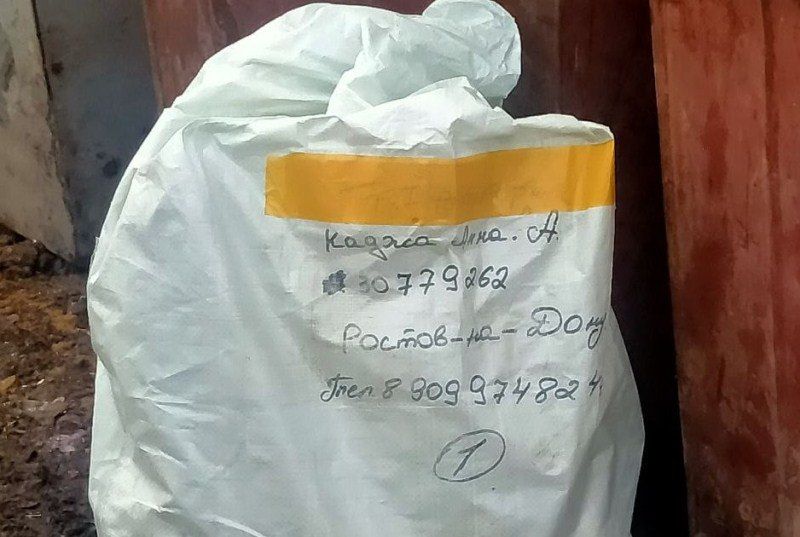 Каджа Анна. А.
30779262
Ростов-на-Дону
Тел 8 909 974 82 4
1